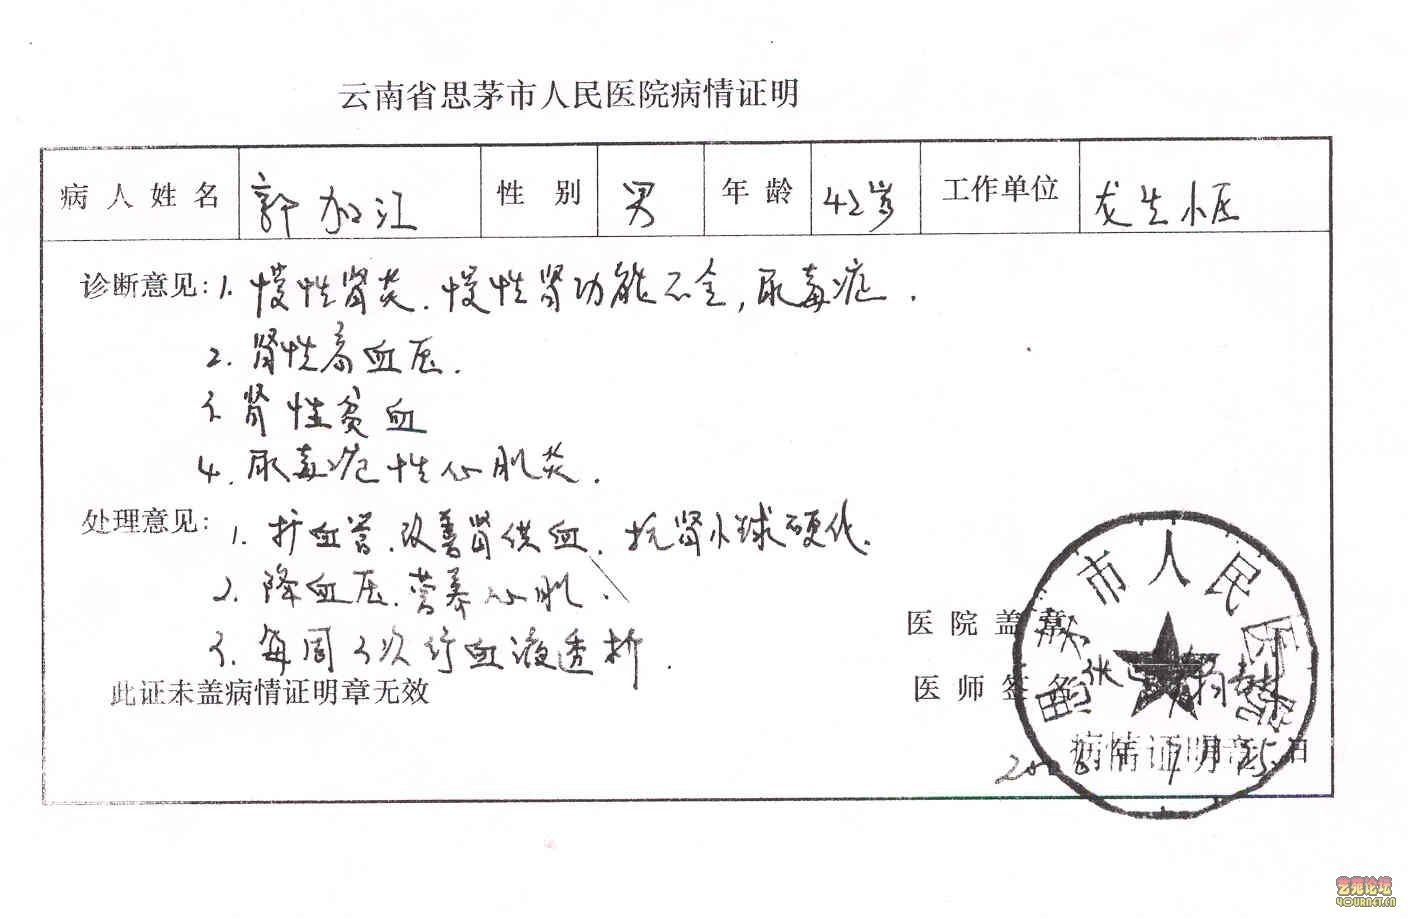 云南省思茅市人民医院病情证明
病人姓名 郭加江 性别 男 年龄 42岁 工作单位 龙生小区
诊断意见: 1. 慢性肾炎. 慢性肾功能不全, 尿毒症.
2. 肾性高血压.
3. 肾性贫血
4. 尿毒症性心肌炎.
处理意见: 1. 扩血管. 改善肾供血. 抗肾小球硬化.
2. 降血压. 营养心肌.
3. 每周3次行血液透析.
医院盖章
此证未盖病情证明章无效
医师签名
年 月 25 日
思茅市人民医院
病情证明章
艺苑论坛
4OURNET.CN